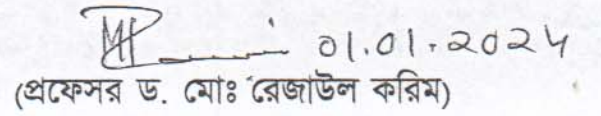 01.01.2024
(প্রফেসর ড. মোঃ রেজাউল করিম)